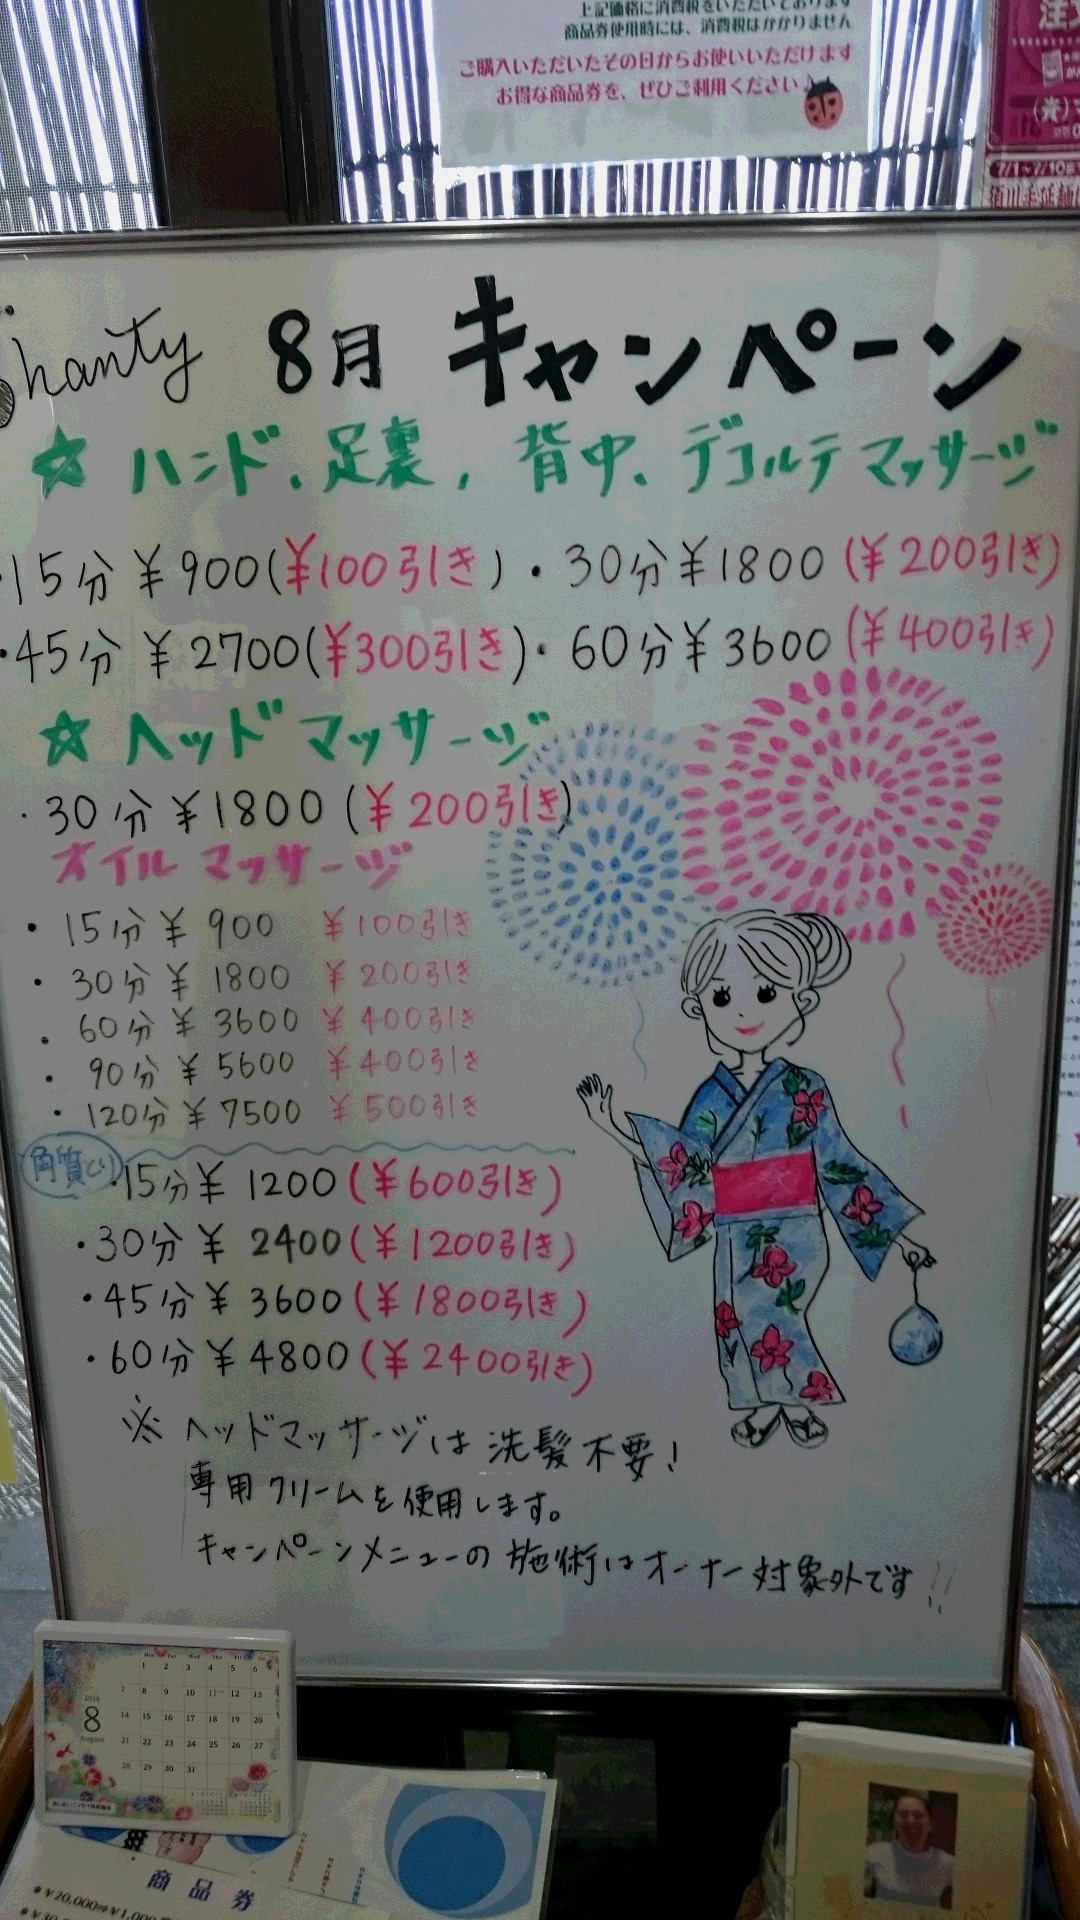 上記価格に消費税をいただいております
商品券使用時には、消費税はかかりません
ご購入いただいたその日からお使いいただけます
お得な商品券を、ぜひご利用ください♪
注文
7/1~7/10
Shanty 8月 キャンペーン
☆ ハンド、足裏、背中、デコルテマッサージ
・15分¥900(¥100引き)・30分¥1800(¥200引き)
・45分¥2700(¥300引き)・60分¥3600(¥400引き)
☆ ヘッドマッサージ
・30分¥1800(¥200引き)
オイルマッサージ
・15分¥900 ¥100引き
・30分¥1800 ¥200引き
・60分¥3600 ¥400引き
・90分¥5600 ¥400引き
・120分¥7500 ¥500引き
角質とり
・15分¥1200(¥600引き)
・30分¥2400(¥1200引き)
・45分¥3600(¥1800引き)
・60分¥4800(¥2400引き)
※ヘッドマッサージは洗髪不要!
専用クリームを使用します。
キャンペーンメニューの施術はオーナー対象外です!!
Mon Tue Wed Thu Fri
1 2 3 4 5 6
7 8 9 10 11 12 13
14 15 16 17 18 19 20
21 22 23 24 25 26 27
28 29 30 31
2016
8
August
商品券
*¥20,000⇒¥1,000